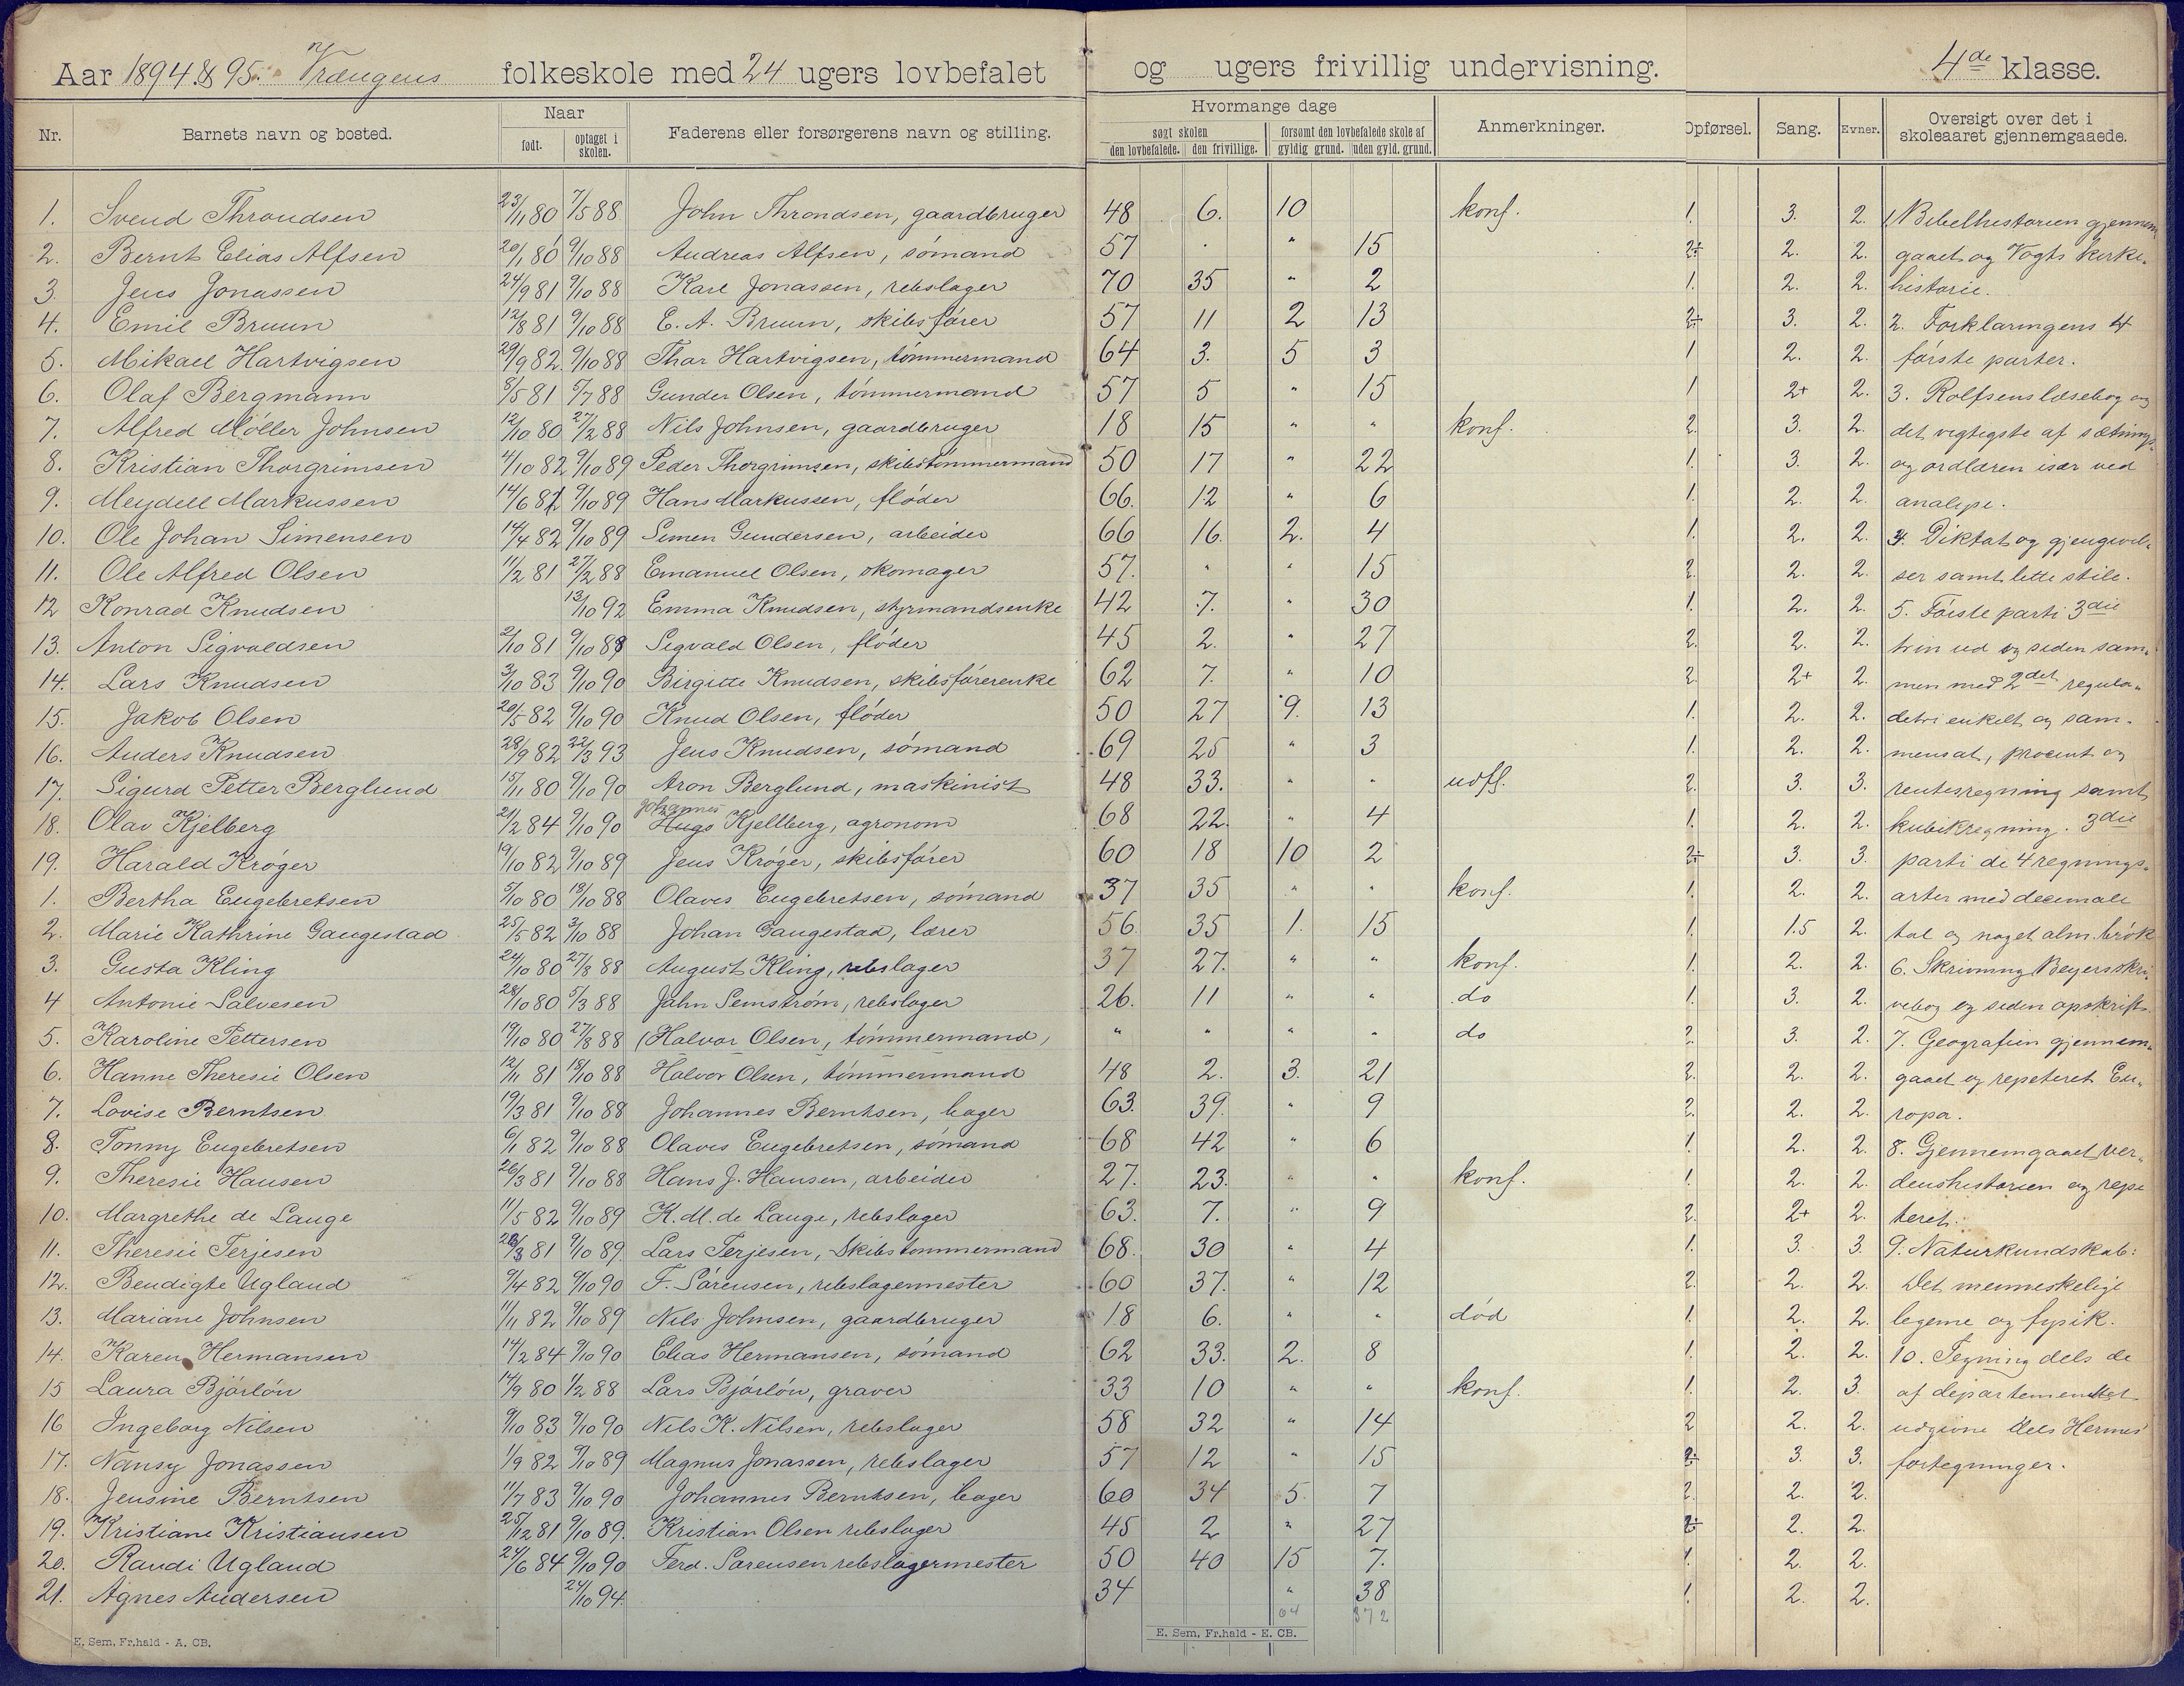 Aar 1894 & 95. Vrængens folkeskole med 24 ugers lovbefalet og ugers frivillig undervisning. 4de klasse.
Nr. Barnets navn og bosted. Naar født. optaget i skolen. Faderens eller forsørgerens navn og stilling. Hvormange dage søgt skolen den lovbefalede. den frivillige. forsømt den lovbefalede skole af gyldig grund. uden gyld. grund. Anmerkninger. Opførsel. Sang. Evner. Oversigt over det i skoleaaret gjennemgaaede.
1. Svend Throndsen 23/11 80 7/5 88 John Throndsen, gaardbruger 48 6. 10 konf. 1. 3. 2. 1. Bibelhistorien gjennem
2. Bernt Elias Alfsen 20/1 80 9/10 88 Andreas Alfsen, sømand 57 . " 15 2÷ 2. 2. gaaet og Vogts kirke-
3. Jens Jonassen 24/9 81 9/10 88 Karl Jonassen, rebslager 70 35 " 2 1. 2. 2. historie.
4. Emil Bruun 12/8 81 9/10 88 E. A. Bruun, skibsfører 57 11 2 13 2÷ 3. 2. 2. Forklaringens 4
5. Mikael Hartvigsen 29/9 82. 9/10 88 Thor Hartvigsen, tømmermand 64 3. 5 3 1 2. 2. første parter.
6. Olaf Bergmann 8/5 81 5/7 88 Gunder Olsen, tømmermand 57 5 " 15 1 2+ 2. 3. Rolfsens læsebog og
7. Alfred Møller Johnsen 12/10 80 27/2 88 Nils Johnsen, gaardbruger 18 15 " " konf. 2. 3. 2. det vigtigste af sætnings-
8. Kristian Thorgrimsen 4/10 82 9/10 89 Peder Thorgrimsen, skibstømmermand 50 17 " 22 1. 3. 2. og ordlæren især ved
9. Meydell Markussen 14/6 82 9/10 89 Hans Markussen, fløder 66. 12 " 6 1. 2. 2. analyse.
10. Ole Johan Simensen 14/4 82 9/10 89 Simen Gundersen, arbeider 66 16. 2. 4 1. 2. 2. 4. Diktat og gjengivel-
11. Ole Alfred Olsen 11/2 81 27/2 88 Emanuel Olsen, skomager 57. " " 15 2. 2. 2. ser samt lette stile.
12 Konrad Knudsen 13/10 92 Emma Knudsen, styrmandsenke 42 7. " 30 1. 2. 2. 5. Første parti 3die
13. Anton Sigvaldsen 2/10 81 9/10 88 Sigvald Olsen, fløder 45 2. " 27 2. 2. 2. trin ud og siden sam-
14. Lars Knudsen 3/10 83 9/10 90 Birgitte Knudsen, skibsførerenke 62 7. " 10 2. 2+ 2. men med 2det regula-
15. Jakob Olsen 20/5 82 9/10 90 Knud Olsen, fløder 50 27 9. 13 1. 2. 2. detri enkelt og sam-
16. Anders Knudsen 28/9 82 22/3 93 Jens Knudsen, sømand 69 25 " 3 1. 2. 2. mensat, procent og
17. Sigurd Petter Berglund 15/11 80 9/10 90 Aron Berglund, maskinist 48 33. " " udfl. 2. 3. 3. rentesregning samt
18. Olav Kjelberg 21/2 84 9/10 90 Johannes Hugo Kjellberg, agronom 68 22. " 4 1. 2. 2. kubikregning. 3die
19. Harald Krøger 19/10 82 9/10 89 Jens Krøger, skibsfører 60 18 10 2 2÷ 3. 3. parti de 4 regnings-
1. Bertha Engebretsen 5/10 80 18/10 88 Olaves Engebretsen, sømand 37 35 " " konf. 1. 2. 2. arter med decimale
2. Marie Kathrine Gaugestad 25/5 82 3/10 88 Johan Gaugestad, lærer 56 35 1. 15 1. 1.5 2. tal og noget alm. brøk
3. Gusta Kling 24/10 80 27/3 88 August Kling, rebslager 37 27. " " konf. 1. 2. 2. 6. Skrivning Beyers skri-
4 Antonie Salvesen 28/10 80 5/3 88 Jahn Semstrøm, rebslager 26. 11 " " do 1. 3. 2. vebog og siden opskrift.
5. Karoline Pettersen 19/10 80 27/3 88 (Halvor Olsen, tømmermand) " " " " do 2. 3. 2. 7. Geografien gjennem-
6. Hanne Theresie Olsen 12/11 81 18/10 88 Halvor Olsen, tømmermand 48 2. 3. 21 2. 2. 2. gaaet og repeteret Eu-
7. Lovise Berntsen 19/3 81 9/10 88 Johannes Berntsen, bager 63. 39. " 9 2. 2. 2. ropa.
8. Tonny Engebretsen 6/1 82 9/10 88 Olaves Engebretsen, sømand 68 42 " 6 1. 2. 2. 8. Gjennemgaaet ver-
9. Theresie Hansen 26/3 81 9/10 88 Hans J. Hansen, arbeider 27. 23. " " konf. 1. 2. 2. denshistorien og repe
10. Margrethe de Lange 11/5 82 9/10 89 K. M. de Lange, rebslager 63. 7. " 9 2. 2+ 2. teret.
11. Theresie Terjesen 28/3 81 9/10 89. Lars Terjesen, Skibstømmermand 68. 30 " 4 1. 3. 3. 9. Naturkundskab:
12. Bendigte Ugland 9/4 82 9/10 90 F. Sørensen, rebslagermester 60 37. " 12 2. 2. 2. Det menneskelige
13. Mariane Johnsen 11/11 82 9/10 89 Nils Johnsen, gaardbruger 18 6. " " død 1. 2. 2. legeme og fysik.
14. Karen Hermansen 14/2 84 9/10 90 Elias Hermansen, sømand 62 33. 2. 8 1. 2. 2. 10. Tegning dels de
15 Laura Bjørløv 14/9 80 1/2 88 Lars Bjørløv, graver 33 10 " " konf. 1. 2. 3. af departementet
16 Ingeborg Nilsen 9/10 83 9/10 90 Nils K. Nilsen, rebslager 58 32 " 14 2 2. 2. udgivne dels Hermes'
17. Nansy Jonassen 1/9 82 9/10 89 Magnus Jonassen, rebslager 57 12 " 15 2÷ 3. 3. fortegninger.
18. Jensine Berntsen 11/7 83 9/10 90 Johannes Berntsen, bager 60 34 5. 7 2. 2. 2.
19. Kristiane Kristiansen 25/12 81 9/10 89. Kristian Olsen rebslager 45 2 " 27 2÷ 2. 2.
20. Randi Ugland 24/6 84 9/10 90 Ferd. Sørensen rebslagermester 50 40 15 7. 1. 2. 2.
21. Agnes Andersen 24/10 94. 34 " 38 1. 2. 2.
64 372
E. Sem, Fr.hald - A. CB. E. Sem, Fr.hald - E. CB.